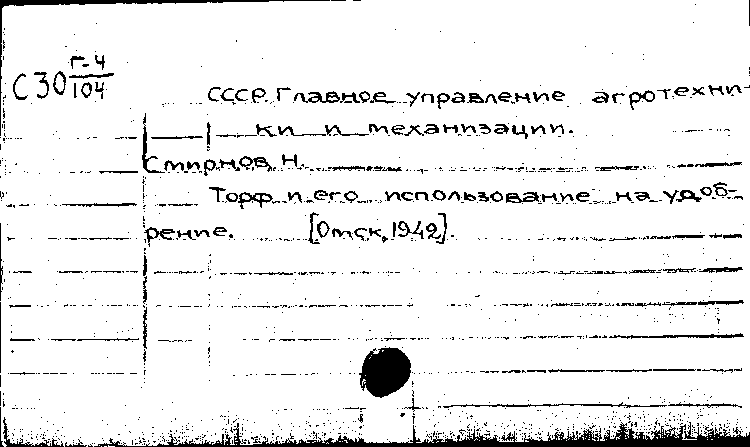 С30 Г-4/104
СССР. Главное управление агротехни-
ки и механизации.
Смирнов, Н.
Торф и его использование на удоб-
рение. [Омск, 1942].